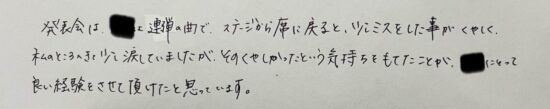 発表会は、 連弾の曲で、ステージから席に戻ると、少しミスをした事がくやしく、
私のところへきて少し涙していましたが、そのくやしかったという気持ちをもてたことが、 にとって
良い経験をさせて頂けたと思っています。